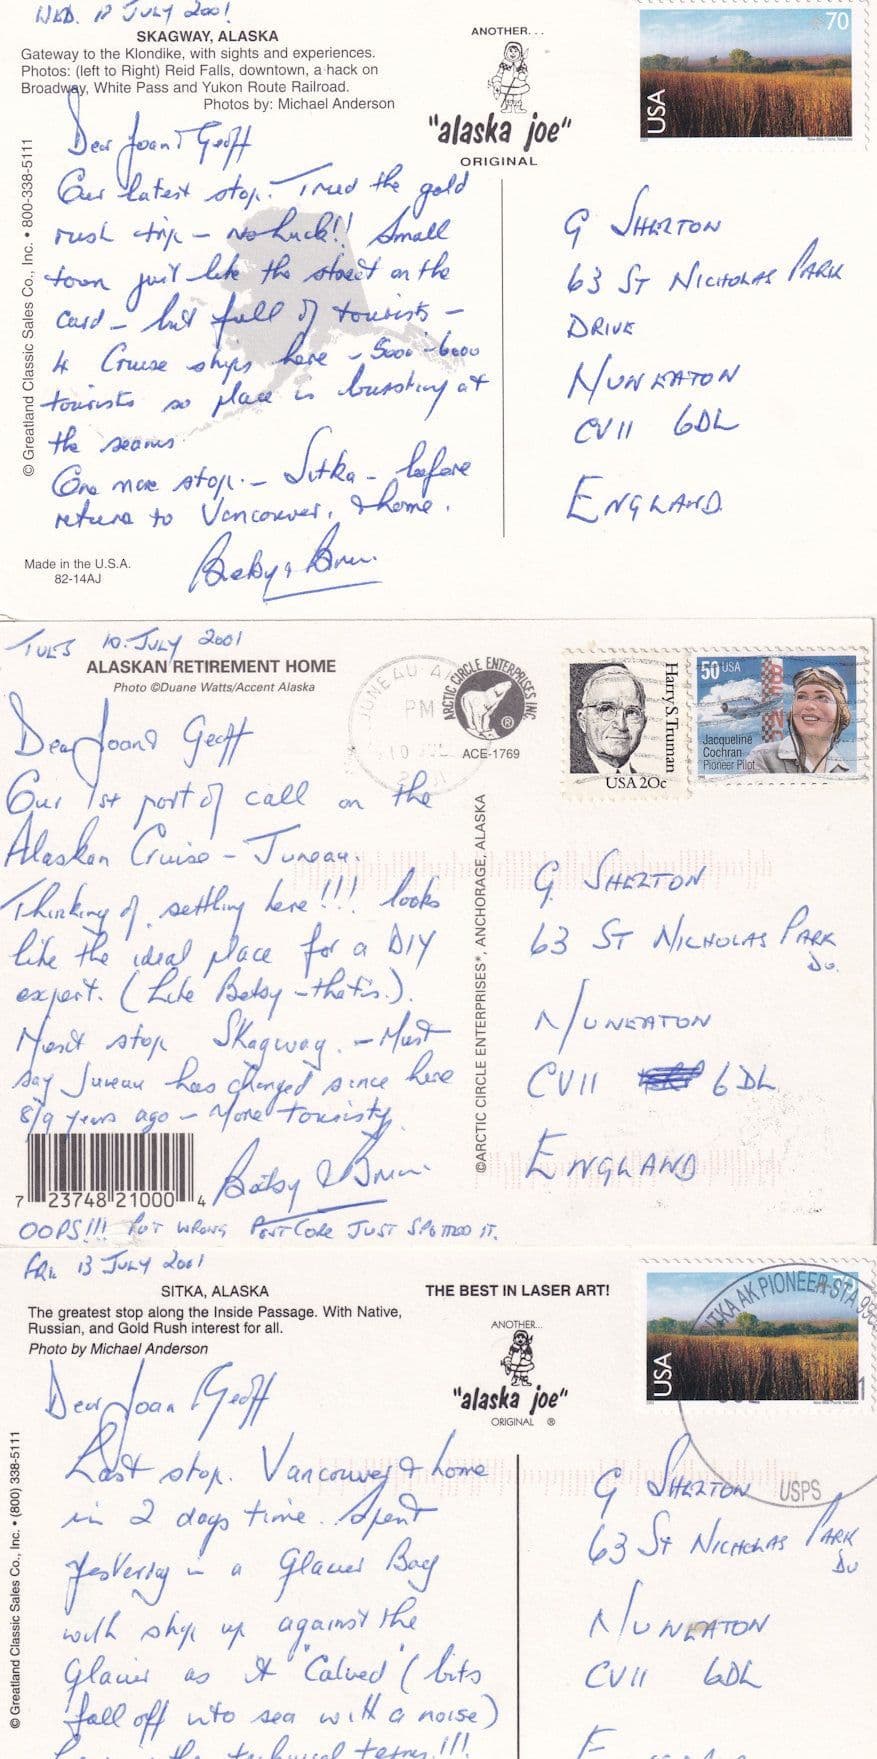 WED. 12 JULY 2001
SKAGWAY, ALASKA
Gateway to the Klondike, with sights and experiences.
Photos: (left to Right) Reid Falls, downtown, a hack on
Broadway, White Pass and Yukon Route Railroad.
Photos by: Michael Anderson
ANOTHER...
"alaska joe"
ORIGINAL
70
USA
© Greatland Classic Sales Co., Inc. • 800-338-5111
Dear Joan & Geoff
Our latest stop. Tried the gold
rush trip - No Luck!! Small
town just like the street on the
card - but full of tourists -
4 Cruise ships here - 5000-6000
tourists so place is bursting at
the seams.
One more stop. - Sitka - before
return to Vancouver, & home.
Betsy & Brian.
Made in the U.S.A.
82-14AJ
G SHELTON
63 ST NICHOLAS PARK
DRIVE
NUNEATON
CV11 6DL
ENGLAND.
TUES 10. JULY 2001
ALASKAN RETIREMENT HOME
Photo ©Duane Watts/Accent Alaska
JUNEAU AK
PM
10 JUL
2001
ARCTIC CIRCLE ENTERPRISES INC.
®
ACE-1769
Harry S. Truman
USA 20c
50 USA
Jacqueline
Cochran
Pioneer Pilot
Dear Joan & Geoff
Our 1st port of call on the
Alaskan Cruise - Juneau.
Thinking of settling here!!! looks
like the ideal place for a DIY
expert. (Like Betsy - that is.).
Next stop Skagway. - Must
say Juneau has changed since here
8/9 years ago - More touristy.
Betsy & Brian.
7 23748 21000 4
OOPS!!! PUT WRONG POSTCODE JUST SPOTTED IT.
©ARCTIC CIRCLE ENTERPRISES®, ANCHORAGE, ALASKA
G. SHELTON
63 ST NICHOLAS PARK
DR.
NUNEATON
CV11 6DL
ENGLAND
FRI. 13 JULY 2001
SITKA, ALASKA
The greatest stop along the Inside Passage. With Native,
Russian, and Gold Rush interest for all.
Photo by Michael Anderson
THE BEST IN LASER ART!
ANOTHER...
"alaska joe"
ORIGINAL ®
USA
SITKA AK PIONEER STA
USPS
© Greatland Classic Sales Co., Inc. • (800) 338-5111
Dear Joan & Geoff
Last stop. Vancouver & home
in 2 days time. Spent
yesterday in a Glacier Bay
with ship up against the
Glacier as it "Calved" (bits
fall off into sea with a noise)
the technical terms!!!
G SHELTON
63 ST NICHOLAS PARK
DR
NUNEATON
CV11 6DL